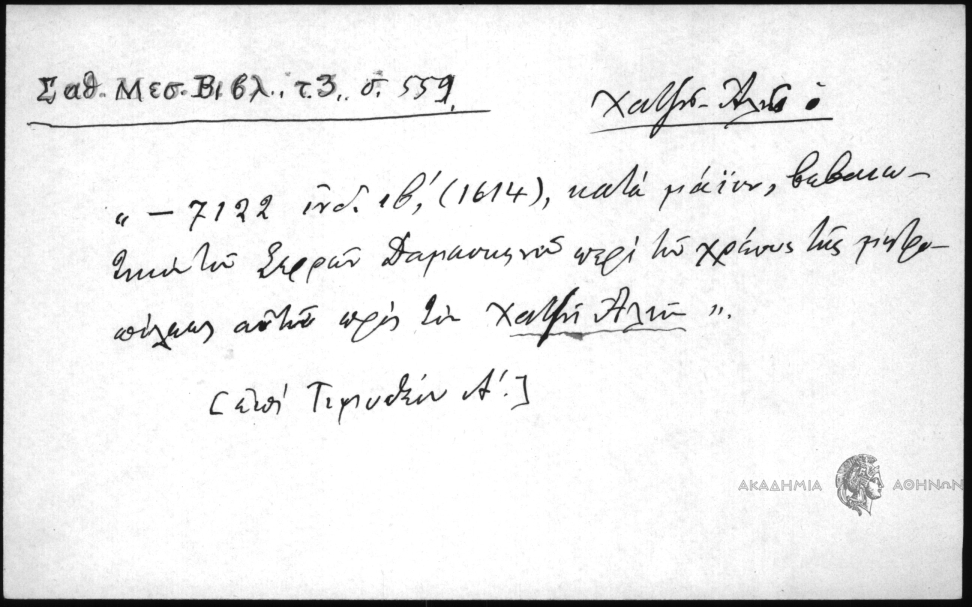 Σαθ. Μεσ. Βιβλ. τ. 3. σ. 559.
Χατζῆ-Ἀλῆς ὁ
"— 7122 ἰνδ. ιβ', (1614), κατὰ μάϊον, βεβαιω-
τικὸν τοῦ Σερρῶν Δαμασκηνοῦ περὶ τοῦ χρέους τῆς μητρο-
πόλεως αὐτοῦ πρὸς τὸν Χατζῆ Ἀλῆν".
[ἐπὶ Τιμοθέου Α'.]
ΑΚΑΔΗΜΙΑ ΑΘΗΝΩΝ